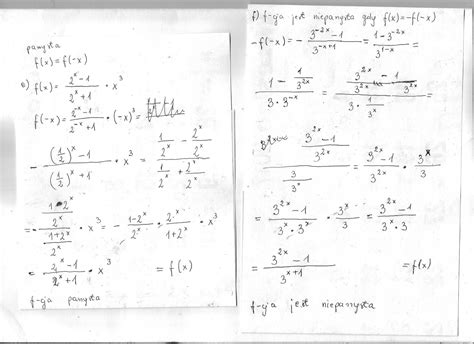 parzysta
f(x) = f(-x)
e) f(x) = \frac{2^x-1}{2^x+1} · x^3
f(-x) = \frac{2^{-x}-1}{2^{-x}+1} · (-x)^3 =
- \frac{(\frac{1}{2})^x-1}{(\frac{1}{2})^x+1} · x^3 = \frac{\frac{1}{2^x} - \frac{2^x}{2^x}}{\frac{1}{2^x} + \frac{2^x}{2^x}}
\frac{\frac{1-2^x}{2^x}}{\frac{1+2^x}{2^x}} · x^3 = - \frac{1-2^x}{2^x} · \frac{2^x}{1+2^x} · x^3
= \frac{2^x-1}{2^x+1} · x^3 = f(x)
f-cja parzysta
f) f-cja jest nieparzysta gdy f(x) = -f(-x)
-f(-x) = - \frac{3^{-2x}-1}{3^{-x+1}} = \frac{1-3^{-2x}}{3^{1-x}} =
\frac{1 - \frac{1}{3^{2x}}}{3·3^{-x}} = \frac{\frac{3^{2x}}{3^{2x}} - \frac{1}{3^{2x}}}{3·\frac{1}{3^x}} =
\frac{\frac{3^{2x}-1}{3^{2x}}}{\frac{3}{3^x}} = \frac{3^{2x}-1}{3^{2x}} · \frac{3^x}{3}
= \frac{3^{2x}-1}{3^x·3^x} · \frac{3^x}{3} = \frac{3^{2x}-1}{3^x·3}
= \frac{3^{2x}-1}{3^{x+1}} = f(x)
f-cja jest nieparzysta